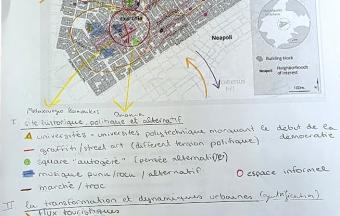 exarchia
Neapoli
Building block
Neapoli Neighborhoods of interest
100m
Metaxourgio
Omonia
I site historique, politique et alternatif
universités = universités polytechnique marquant le début de la démocratie
graffiti/street art (different tension politique)
square "autogéré" (pensée alternative)
musique punk/rock/alternatif
espace informel
marché/troc
II la transformation et dynamiques urbaines (gentrification)
flux touristiques